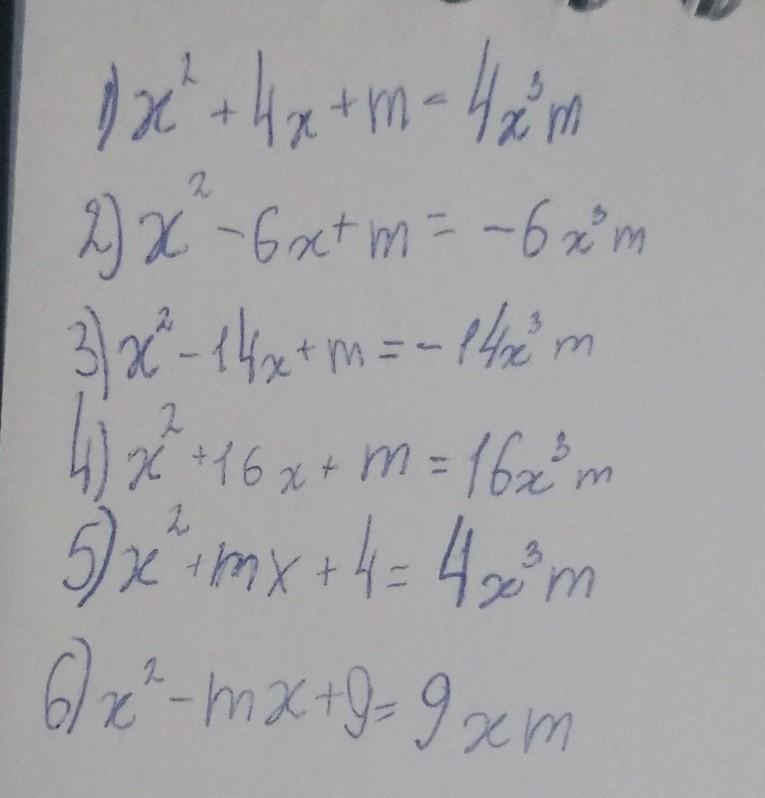 1) x² + 4x + m = 4x³m
2) x² - 6x + m = -6x³m
3) x² - 14x + m = -14x³m
4) x² + 16x + m = 16x³m
5) x² + mx + 4 = 4x³m
6) x² - mx + 9 = 9xm